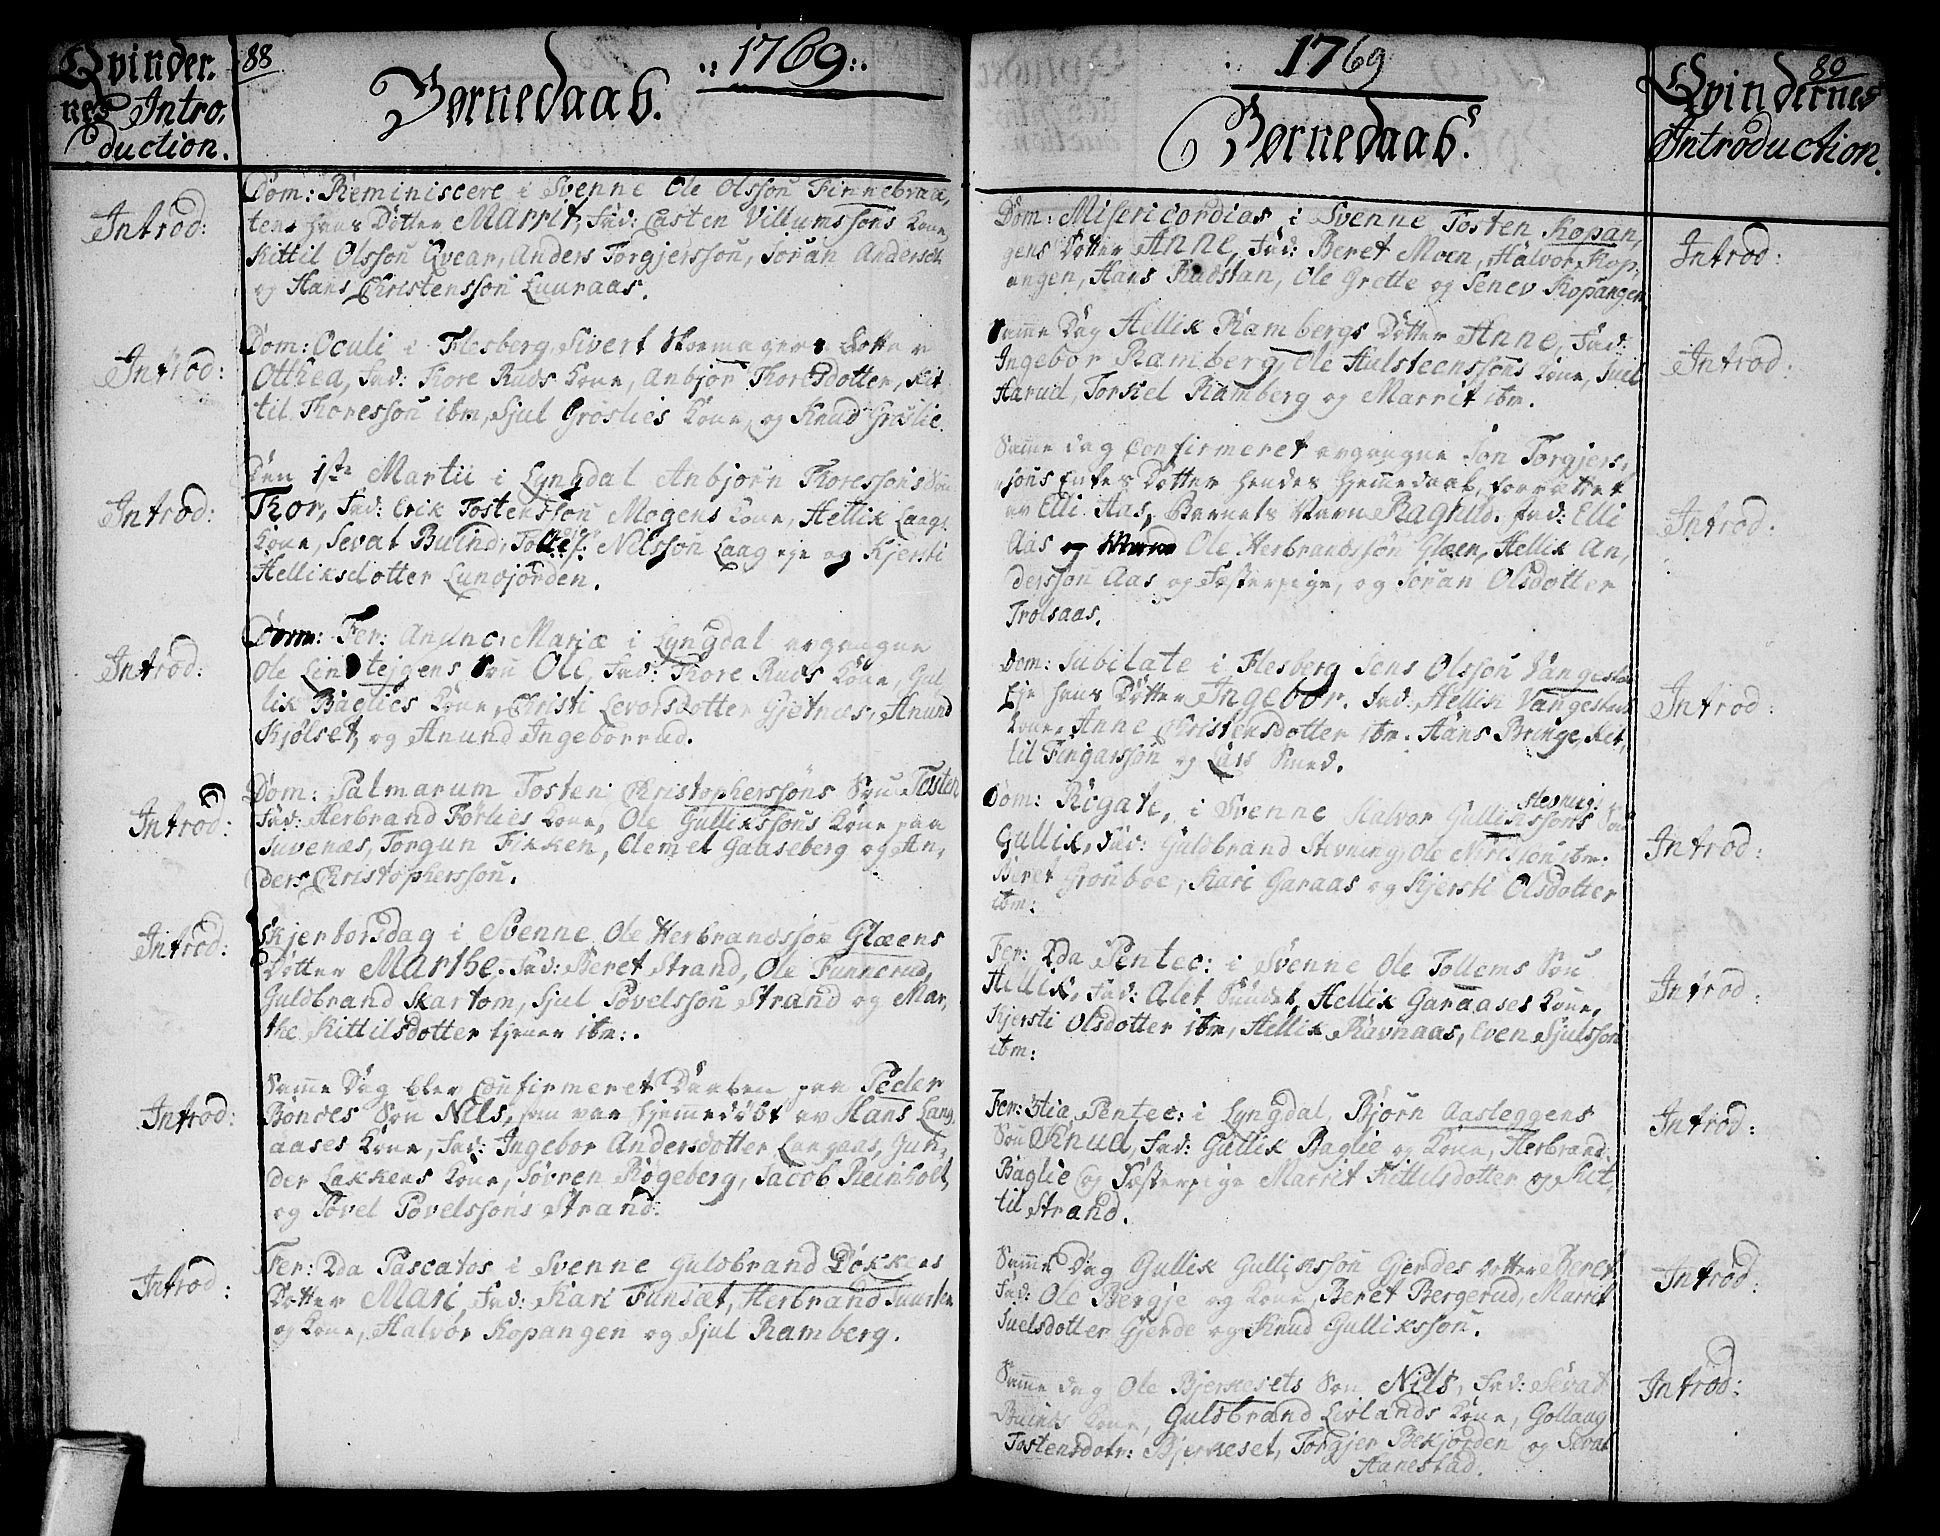 Qvinder-
nes Intro-
duction.
88
1769
Børnedaab.
Introd:
Dom: Reminiscere i Svenne Ole Olssøn Finnebraa-
tens hans Dotter Marrit, Fad: Casten Villumssøns Kone,
Kittil Olssøn Qvear, Anders Torgjerssøn, Joran Andersdr
og Hans Christenssøn Luuraas.
Introd:
Dom: Oculi i Flesberg, Sivert Skormagers Dotter
Otthea, Fad: Thore Ruds Kone, Anbjør Thoresdotter, Kit-
til Thoressøn ibm, Sjul Grøslies Kone, og Knud Grøslie.
Introd:
Den 1ste Martii i Lyngdal Anbjørn Thoressøns Søn
Thor, Fad: Erik Tostenssøn Mogens Kone, Hellik Laags
Kone, Sevat Buind, Nilssøn Laag eje og Kjersti
Helliksdotter Lundjorden.
Introd:
Dom: Fer: Anunc: Mariæ i Lyngdal ægangne
Ole Lindstejgens Søn Ole, Fad: Thore Ruds Kone, Gul-
lik Baglies Kone, Christi Levorsdotter Gjetnes, Anund
Kjølset, og Anund Ingeborrud.
Introd:
Dom: Palmarum Tosten Christopherssøns Søn Tosten
Fad: Herbrand Førlies Kone, Ole Gullikssøns Kone paa
Juvenæs, Torgun Fikken, Clemet Gaaseberg og An-
ders Christopherssøn.
Introd:
Skjertorsdag i Svenne Ole Herbrandssøn Glæens
Dotter Marthe. Fad: Beret Strand, Ole Funnerud,
Guldbrand Skartom, Sjul Povelssøn Strand og Mar-
the Kittilsdotter tjener ibm:.
Introd:
Samme Dag blev Confirmeret Daaben paa Peder
Bondes Søn Nils, som var hjemmedøbt av Hans Lang-
aases Kone, Fad: Ingebor Andersdotter Langaas, Gun-
der Lakkens Kone, Søvren Rogeberg, Jacob Reinholt,
og Povel Povelssøns Strand.
Introd:
Fer: 2da Pascatos i Svenne Guldbrand Døkkens
Dotter Mari, Fad: Kari Funsæt, Herbrand
og Kone, Halvor Kopangen og Sjul Ramberg.
1769
Børnedaab.
80
Qvindernes
Introduction.
Dom: Misericordias i Svenne Tosten Kopan-
gens Dotter Anne, Fad: Beret Moen, Halvor Kop-
angen, Hans Rudstan, Ole Grette og Senev Kopangen
Introd:
Samme Dag Hellik Rambergs Dotter Anne, Fad:
Ingebor Ramberg, Ole Halsteenssøns Kone, Juel
Harud, Torkel Ramberg og Marrit ibm.
Introd:
Samme dag Confirmeret ægangne Jon Torgjers-
søns Enkes Dotter hendes hjemmedaab, forrettet
av Elli Aas, Barnets Navn Ragnild. Fad: Elli
Aas Ole Herbrandssøn Glæen, Hellik An-
derssøn Aas og Festerpige, og Joran Olsdotter
Trolsaas.
Introd.
Dom: Jubilate i Flesberg Jens Olssøn Vangestad
Eje hans Dotter Ingebor. Fad: Hellik Vangestads
Kone, Anne Christensdotter ibm. Hans Bringe, Kit-
til Fingarssøn og Lars Smed.
Introd:
Dom: Rogate, i Svenne Halvor Gullikssøns Stevning: Søn
Gullik, Fad: Guldbrand Stevning, Ole Nirissøn ibm.
Beret Grønboe, Kari Garaas og Kjersti Olsdotter
ibm:
Introd:
Fer: 2da Pentec: i Svenne Ole Tollems Søn
Hellik, Fad: Alet Sundet, Hellik Garaases Kone,
Kjersti Olsdotter ibm, Hellik Ravnaas, Even Sjulssøn
ibm:
Introd:
Fer: 3tia Pentec: i Lyngdal, Bjørn Aasleggens
Søn Knud, Fad: Gullik Baglie og Kone, Herbrand
Baglie og Festerpige Marrit Kittilsdotter og Kit-
til Strand.
Introd:
Samme Dag Gullik Gullikssøn Gjerdes Dotter Beret
Fad: Ole Bergje og Kone, Beret Bergerud, Marrit
Juelsdotter Gjerde og Knud Gullikssøn.
Introd:
Samme dag Ole Bjerkesets Søn Nils, Fad: Sevat
Buinds Kone, Guldbrand Livlands Kone, Gollaug
Tostensdotr: Bjerkeset, Torgjer Bekjorden og Sevat
Aanestad.
Introd: